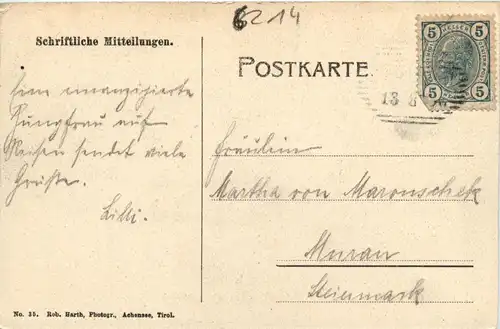 6214
Schriftliche Mitteilungen.
POSTKARTE.
5 5
5 5
13
Eine emanzipierte
Jungfrau auf
Reisen sendet viele
Grüße.
Lilli.
Fräulein
Martha von Maronschek
Murau
Steiermark
No. 35. Rob. Harth, Photogr., Achensee, Tirol.